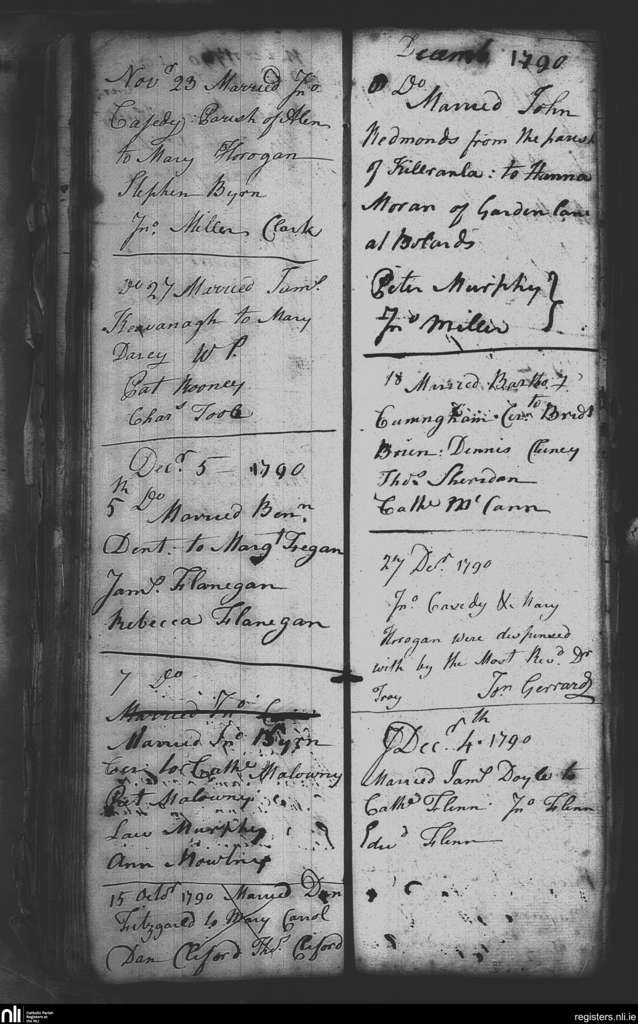 Novr 23 Married Jno
Casedy Parish of Alen
to Mary Horogan
Stephen Byrn
Jno. Miller Clark
Do 27 Married Jams.
Kavanagh to Mary
Darcy W P.
Pat Rooney
Chars Toole
Decr. 5 1790
5th Do
Married Benn.
Dent. to Margt Fegan
Jams. Flanegan
Rebecca Flanegan
7 Do
Married Jno Byrn
to Cathe Malowny
Pat Malowny
Law Murphy
Ann
15 Octobr 1790 Married Dan
Fitzgareld to Mary Carrol
Dan Cliford Ths. Cliford
Decemb 1790
Do
Married John
Redmonds from the parish
of Killranla: to Hanna
Moran of Garden Lane
at Bolards
Peter Murphy
Jno Miller
18 Married Bartho
Cuningham to Bridt
Brien: Dennis Cluney
Thos. Sheridan
Cathe McCann
27 Decr. 1790
Jno Cavedy & Mary
Horogan were dispensed
with by the Most Revd. Dr
Troy Jon Gerrard
Decr. 4th 1790
Married Jams. Doyle to
Cathe Flinn Jno Flinn
Edwd Flinn
nli
Catholic Parish
Registers at
the NLI
registers.nli.ie